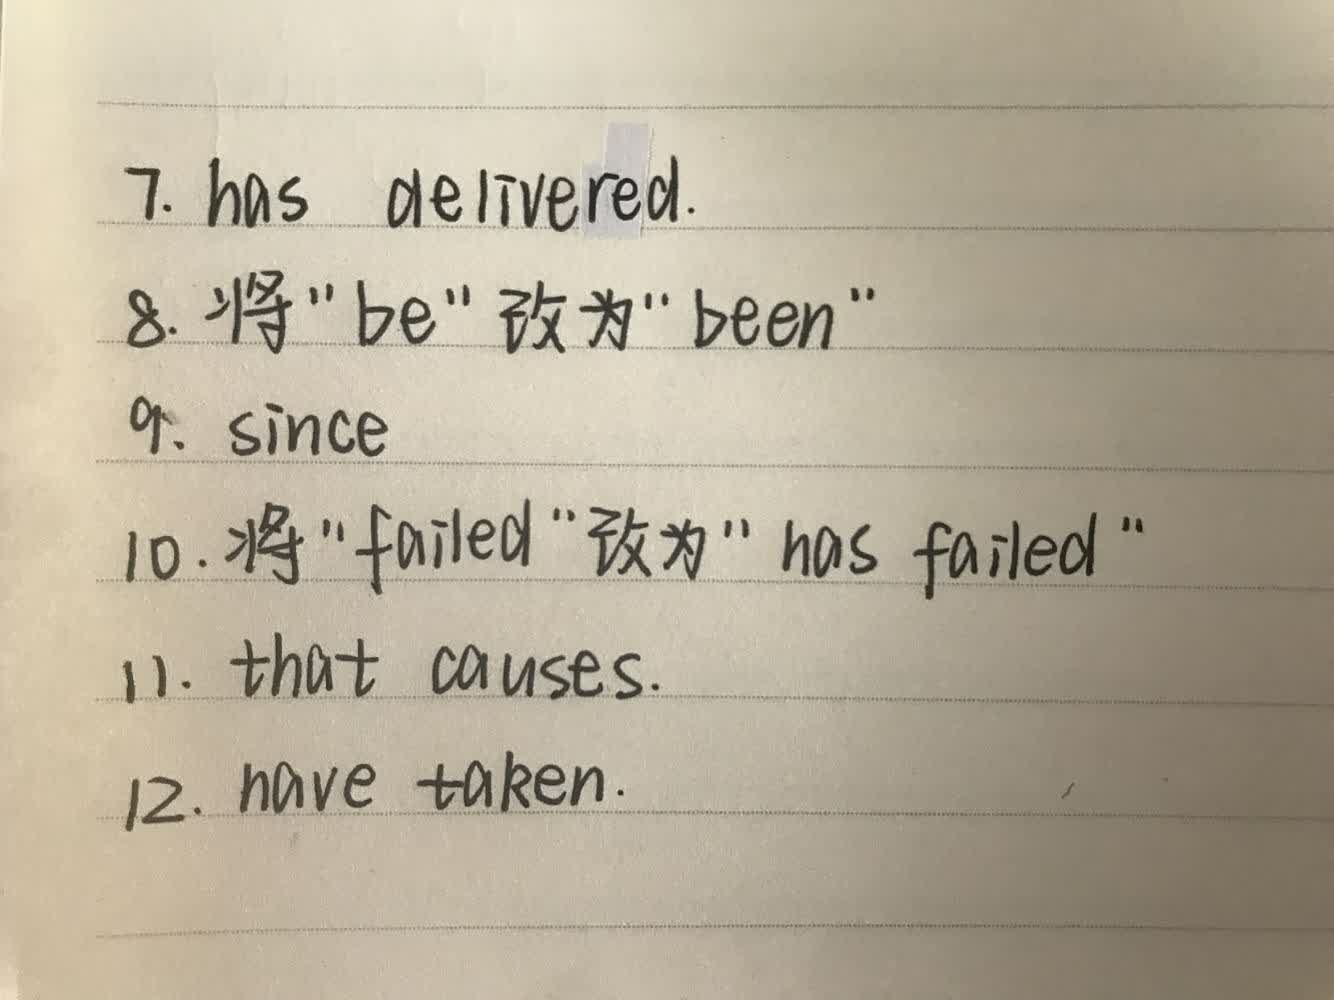 7. has delivered.
8. 将"be"改为"been"
9. since
10. 将"failed"改为"has failed"
11. that causes.
12. have taken.